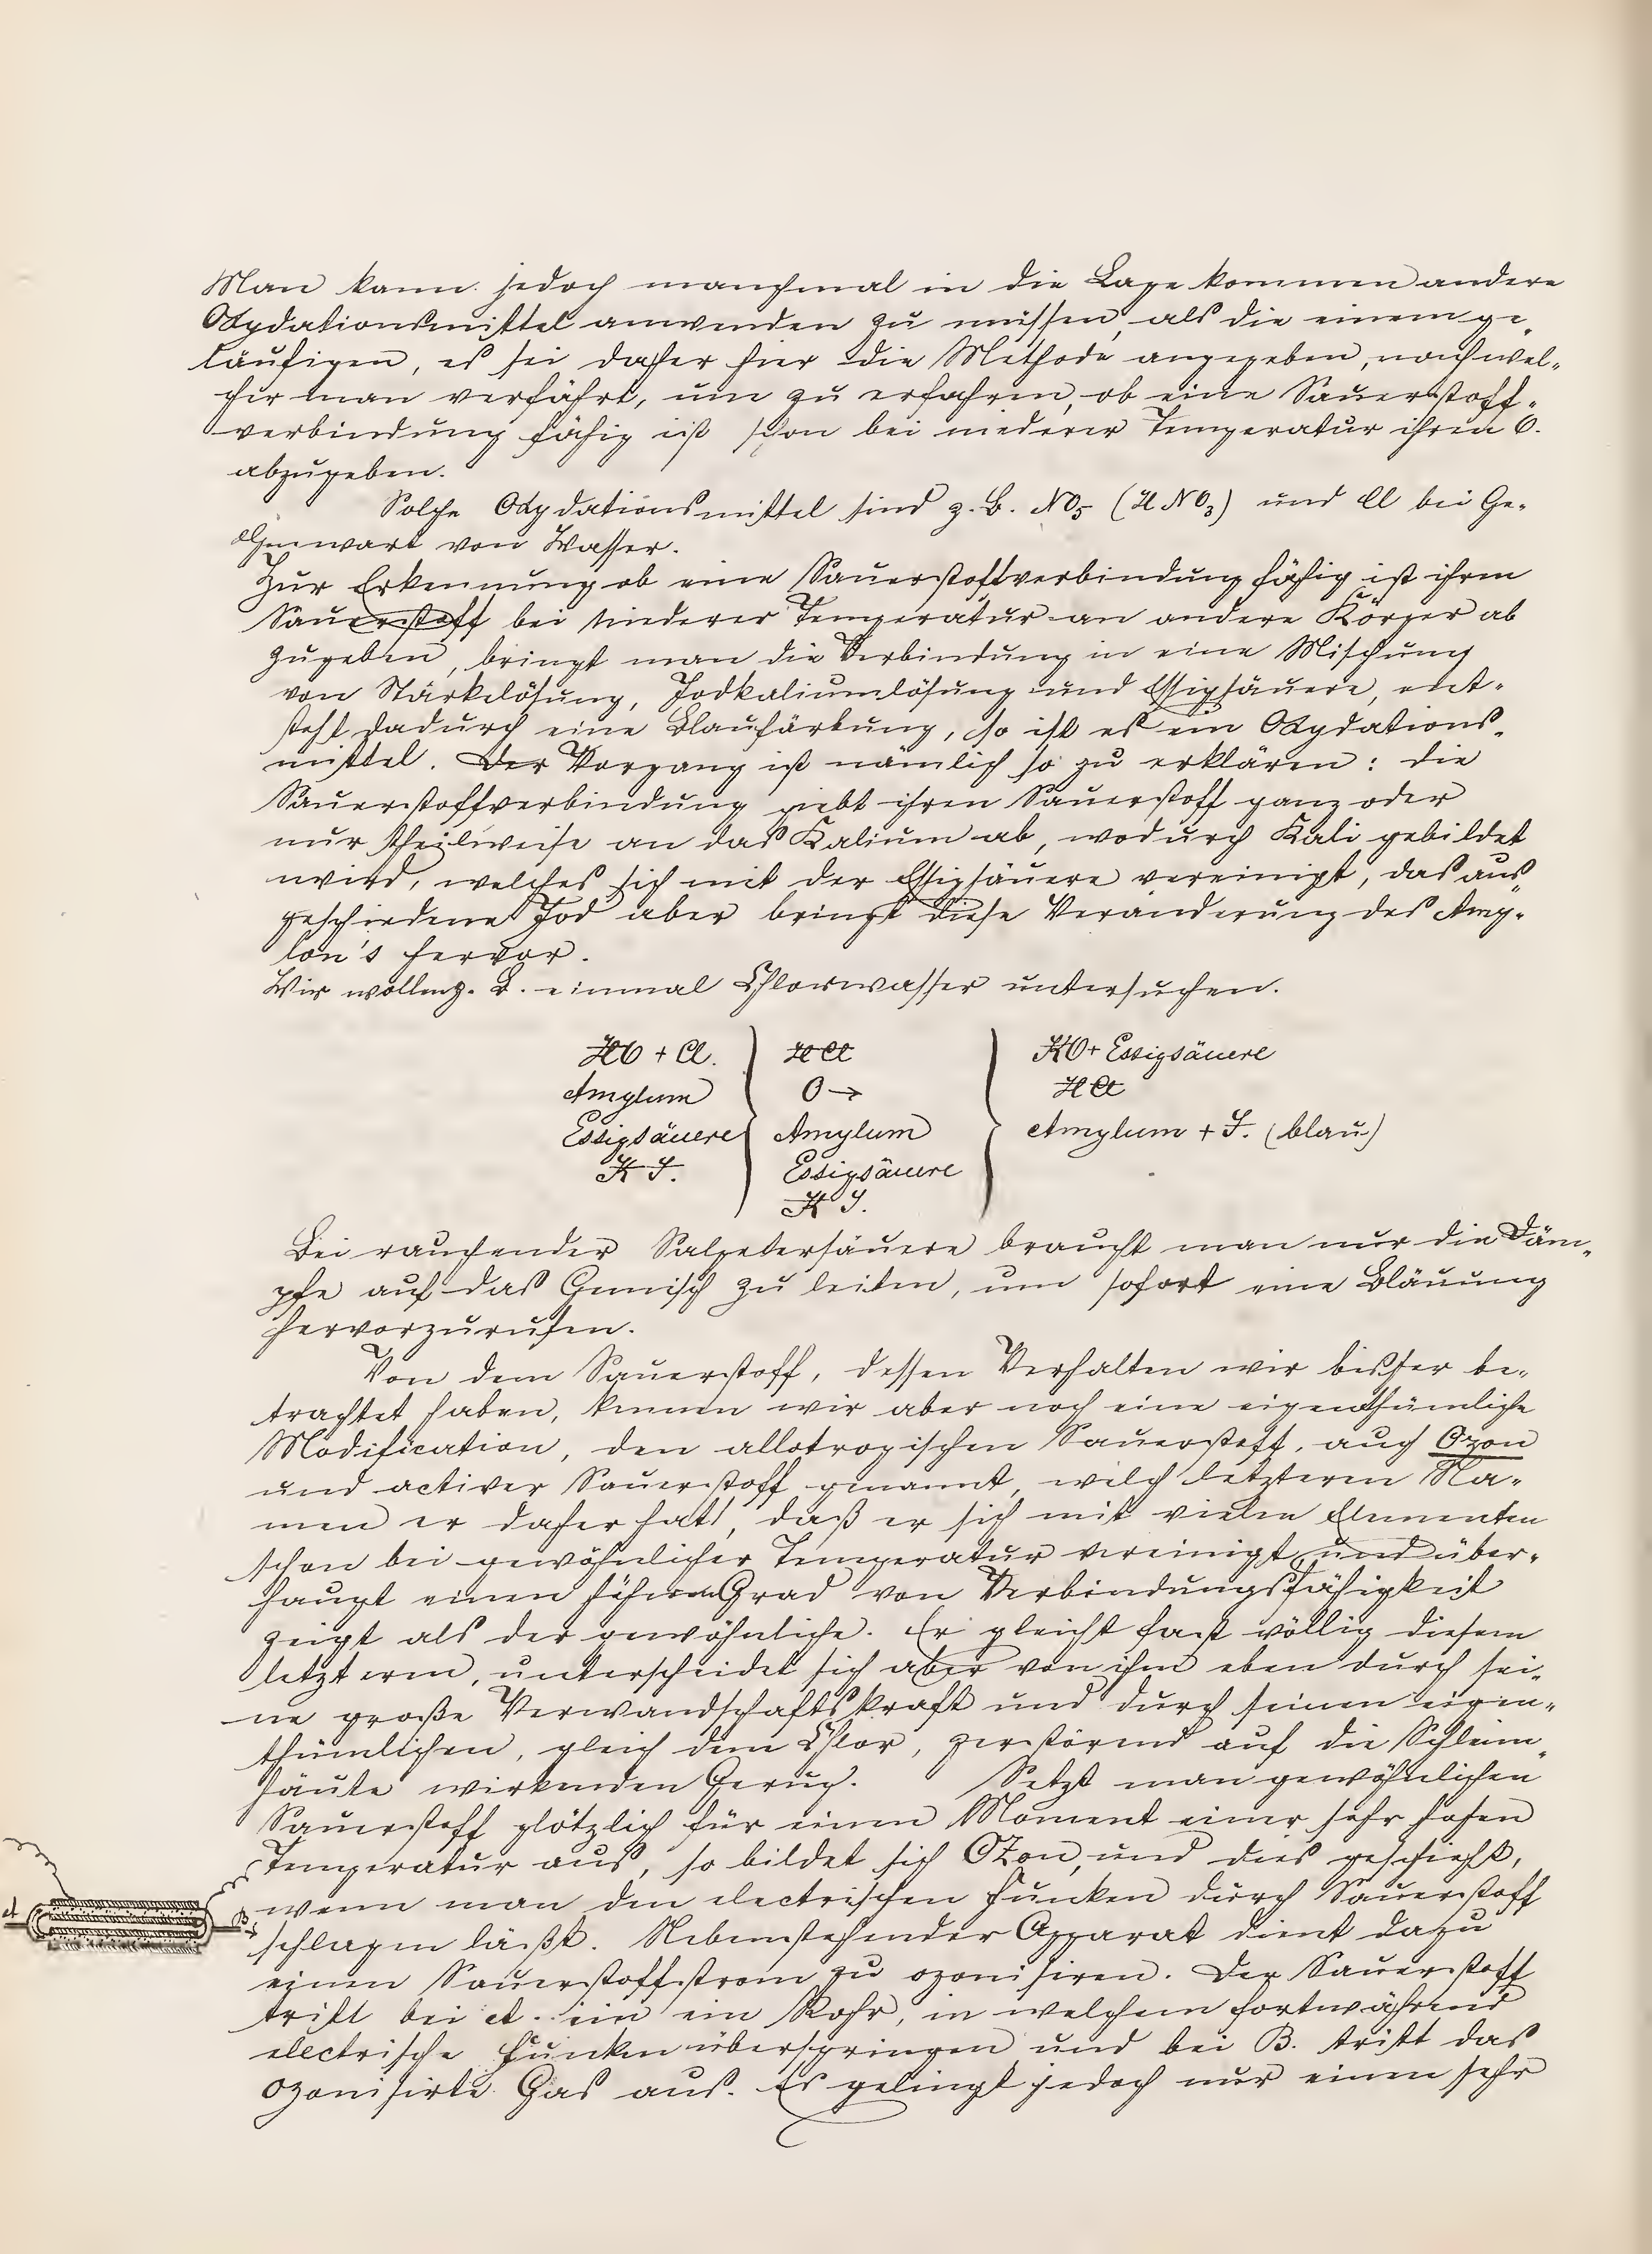 Man kann jedoch manchmal in die Lage kommen andere
Oxydationsmittel anwenden zu müssen, als die einem ge-
läufigen, es sei daher hier die Methode angegeben, nach wel-
cher man verfährt, um zu erfahren, ob eine Sauerstoff-
verbindung fähig ist schon bei niederer Temperatur ihren O.
abzugeben.
Solche Oxydationsmittel sind z. B. NO5 (HNO3) und Cl bei Ge-
genwart von Wasser.
Zur Erkennung ob eine Sauerstoffverbindung fähig ist ihren
Sauerstoff bei niederer Temperatur an andere Körper ab
zugeben, bringt man die Verbindung in eine Mischung
von Stärkelösung, Jodkaliumlösung und Essigsäuere, ent-
steht dadurch eine Blaufärbung, so ist es ein Oxydations-
mittel. Der Vorgang ist nämlich so zu erklären: die
Sauerstoffverbindung giebt ihren Sauerstoff ganz oder
nur theilweise an das Kalium ab, wodurch Kali gebildet
wird, welches sich mit der Essigsäuere vereinigt, das aus-
geschiedene Jod aber bringt diese Veränderung des Amy-
lon's hervor.
Wir wollen z. B. einmal Chlorwasser untersuchen.
HO + Cl. HCl KO + Essigsäuere
Amylum O → HCl
Essigsäuere Amylum Amylum + J. (blau)
K J. Essigsäure
K J.
Bei rauchender Salpetersäuere braucht man nur die Däm-
pfe auf das Gemisch zu leiten, um sofort eine Bläuung
hervorzurufen.
Von dem Sauerstoff, dessen Verhalten wir bisher be-
trachtet haben, kennen wir aber noch eine eigenthümliche
Modification, den allotropischen Sauerstoff, auch Ozon
und activer Sauerstoff genannt, welch letzteren Na-
men er daher hat, daß er sich mit vielen Elementen
schon bei gewöhnlicher Temperatur vereinigt und über-
haupt einen höheren Grad von Verbindungsfähigkeit
zeigt als der gewöhnliche. Er gleicht fast völlig diesem
letzteren, unterscheidet sich aber von ihm eben durch sei-
ne große Verwandschaftskraft und durch seinen eigen-
thümlichen, gleich dem Chlor, zerstörend auf die Schleim-
häute wirkenden Geruch. Setzt man gewöhnlichen
Sauerstoff plötzlich für einen Moment einer sehr hohen
Temperatur aus, so bildet sich Ozon, und dies geschieht,
wenn man den electrischen Funken durch Sauerstoff
A B
schlagen läßt. Nebenstehender Apparat dient dazu
einen Sauerstoffstrom zu ozonisiren. Der Sauerstoff
tritt bei A. ein ein Rohr, in welchem fortwährend
electrische Funken überspringen und bei B. tritt das
ozonisirte Gas aus. Es gelingt jedoch nur einen sehr